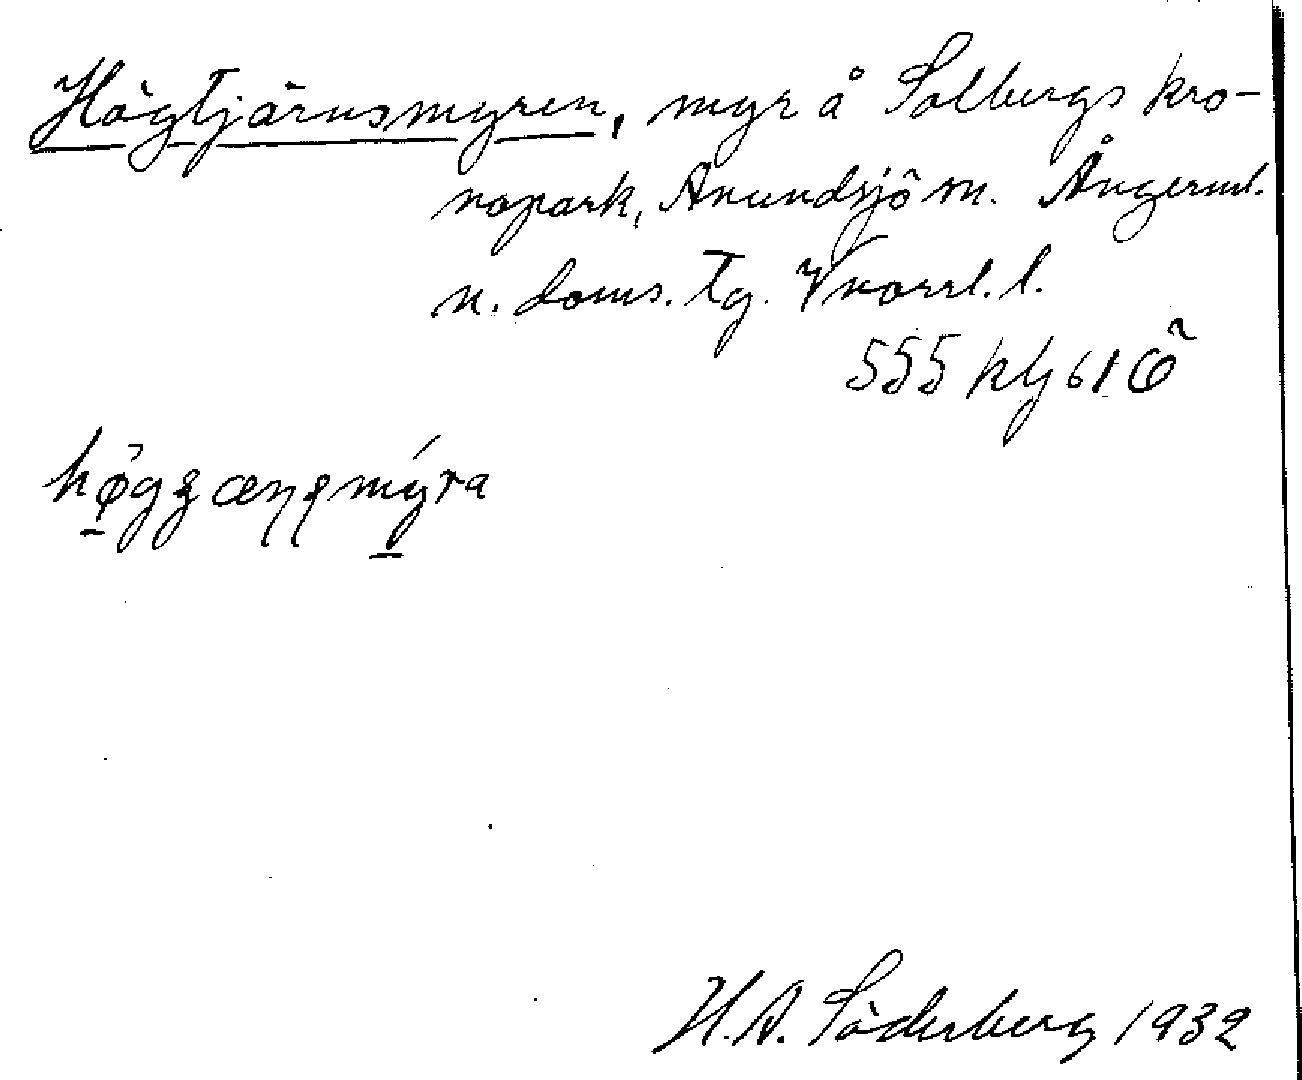 Högtjärnsmyren, myr å Solbergs kro-
nopark, Anundsjö sn. Ångerml.
n. doms. tg. Vnorrl. l.
555 kly 61 Ö
H.A. Söderberg 1932